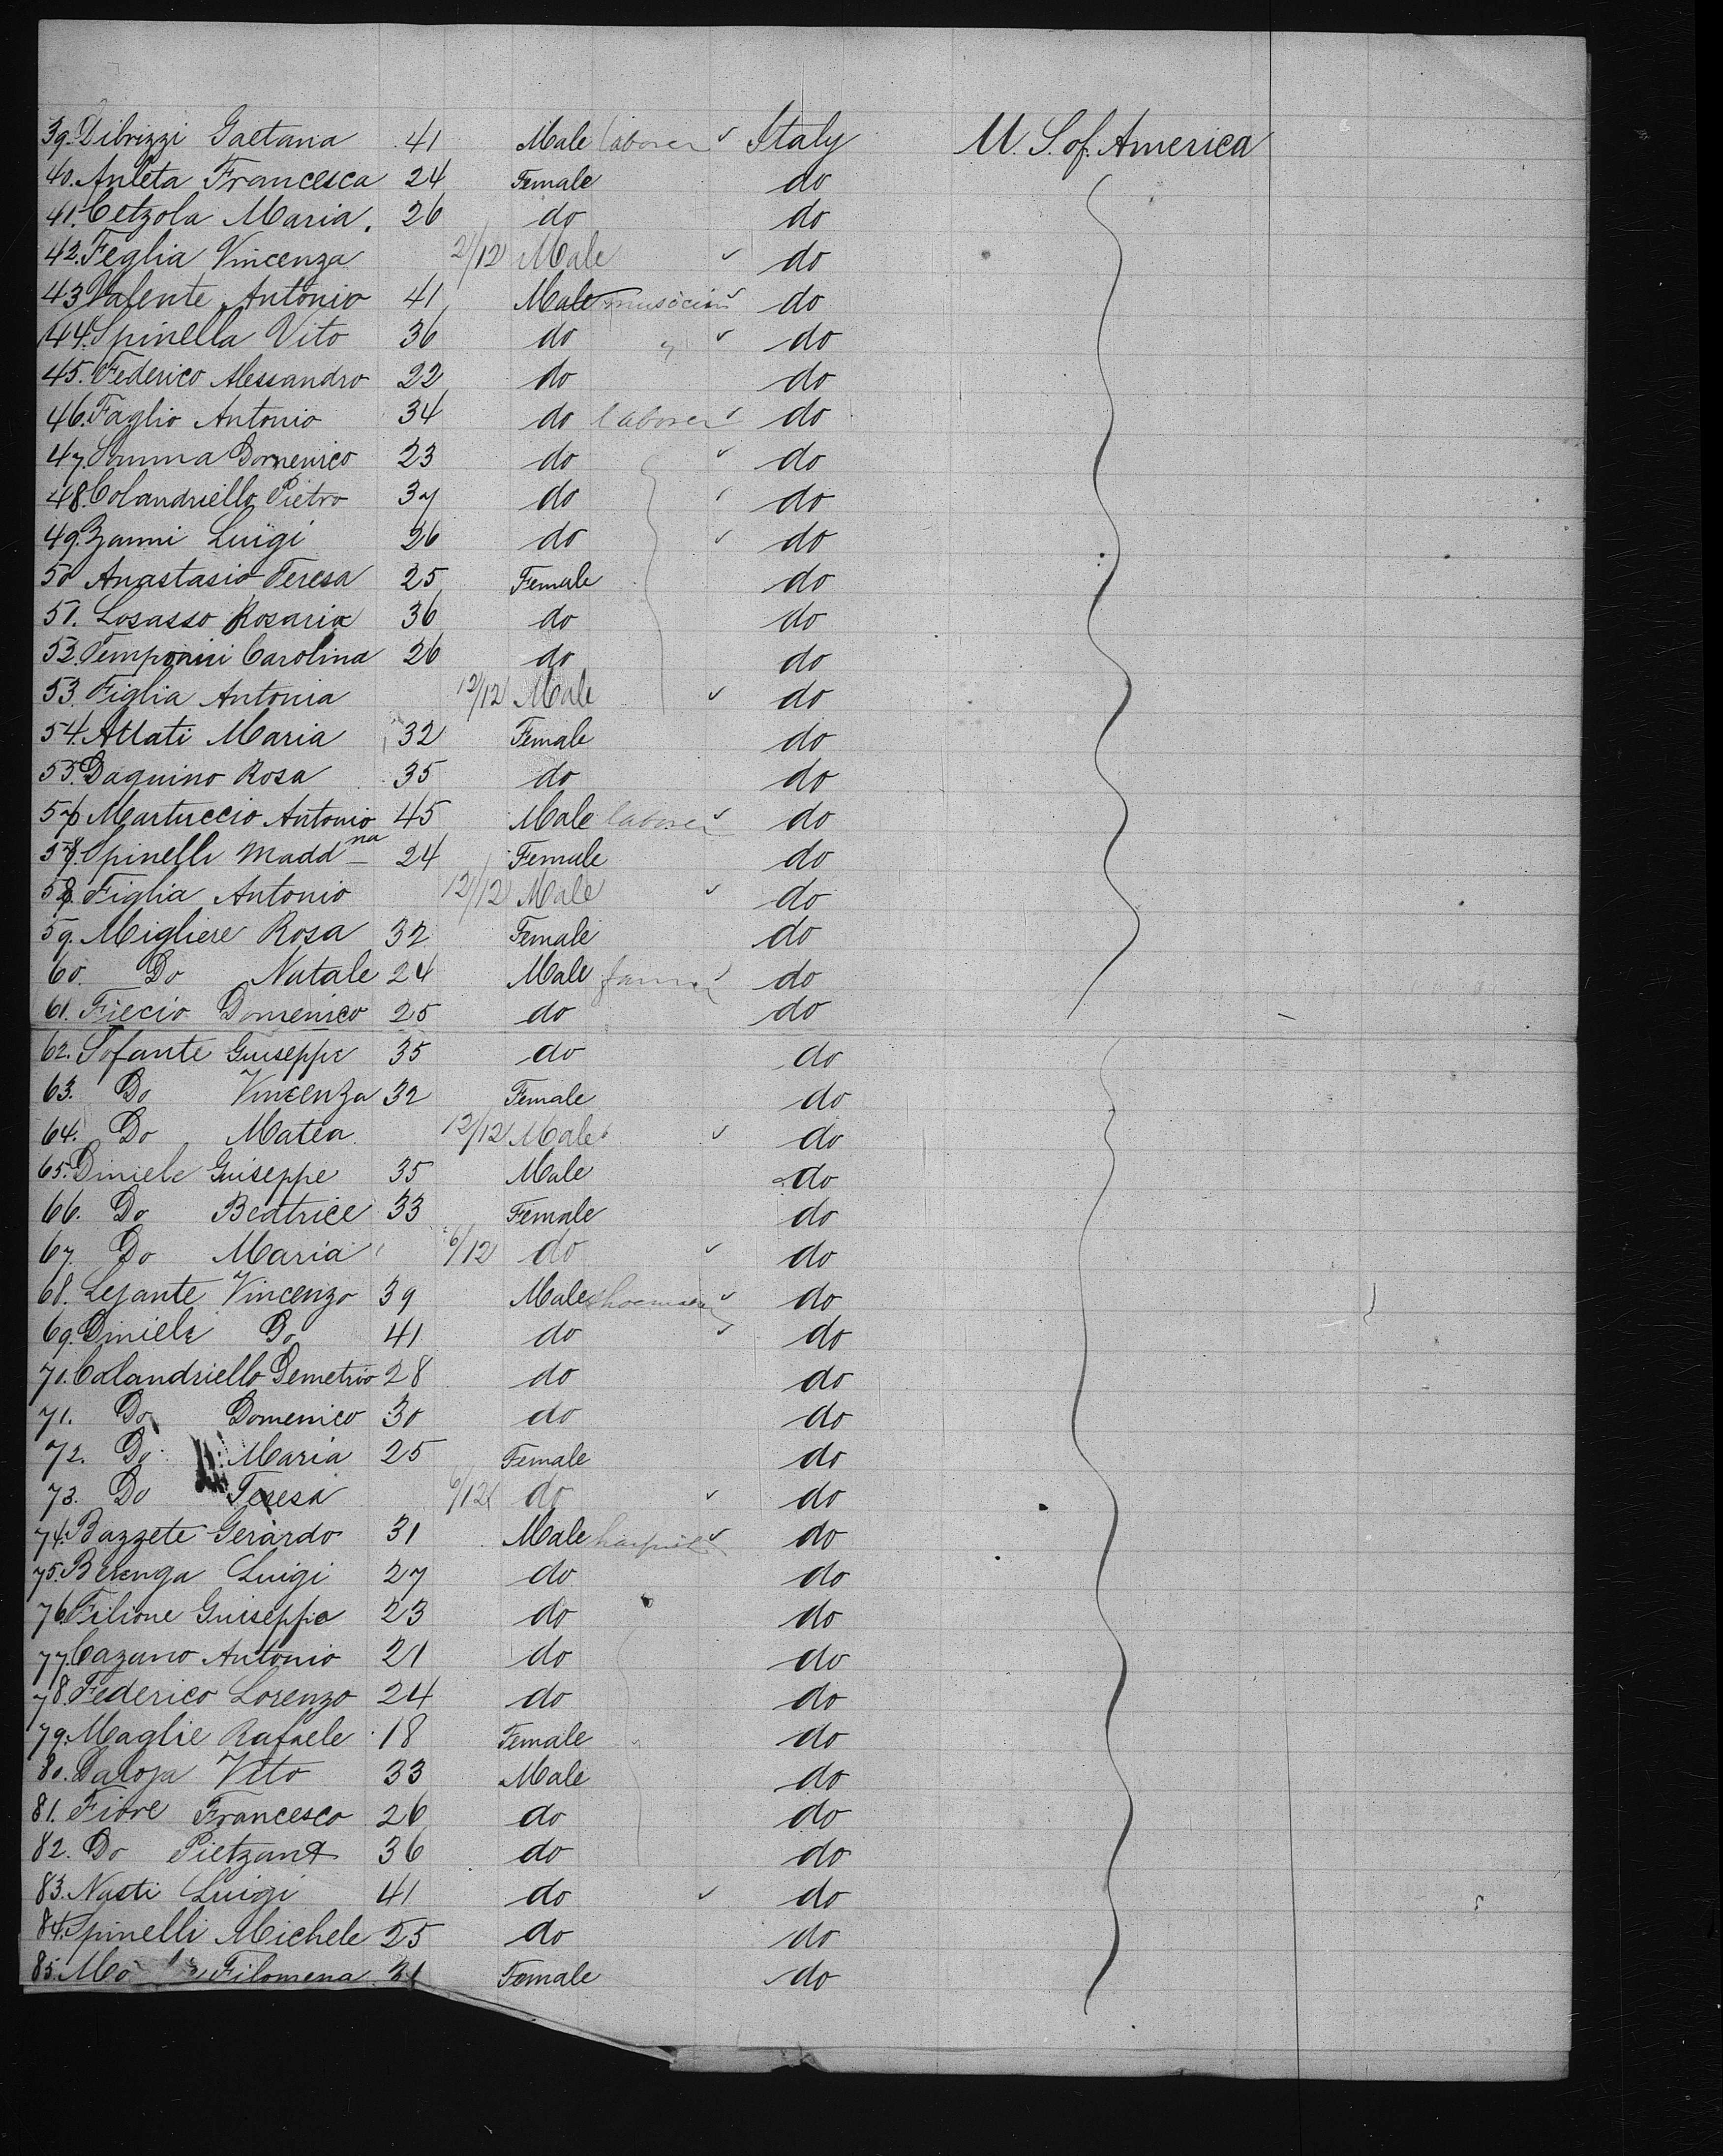 39. Dibrizzi Gaetana 41 Male laborer Italy U. S. of America
40. Anleta Francesca 24 Female do
41. Cetzola Maria. 26 do do
42. Feglia Vincenza 2/12 Male do
43 Valente Antonio 41 Male musician do
44. Spinella Vito 36 do " do
45. Federico Alessandro 22 do do
46. Faglio Antonio 34 do laborer do
47. Somma Domenico 23 do do
48. Colandriello Pietro 37 do do
49. Zanni Luigi 26 do do
50 Anastasio Teresa 25 Female do
51. Losasso Rosaria 36 do do
52. Carolina 26 do do
53. Figlia Antonia 12/12 Male do
54. Allati Maria 32 Female do
55. Daquino Rosa 35 do do
56 Martuccio Antonio 45 Male laborer do
57. Spinelli Madd na 24 Female do
58. Figlia Antonio 12/12 Male do
59. Migliere Rosa 32 Female do
60. Do Natale 24 Male do
61. Fiecio Domenico 25 do do
62. Sofante Guiseppe 35 do do
63. Do Vincenza 32 Female do
64. Do Matea 12/12 Male do
65. Diniele Guiseppe 35 Male do
66. Do Beatrice 33 Female do
67. Do Maria 6/12 do do
68. Lejante Vincenzo 39 Male do
69. Diniele Do 41 do do
71. Colandriello Demetrio 28 do do
71. Do Domenico 30 do do
72. Do Maria 25 Female do
73. Do Teresa 6/12 do do
74. Bazzete Gerardo 31 Male do
75. Berenga Luigi 27 do do
76. Filione Guiseppe 23 do do
77. Cazano Antonio 21 do do
78. Federico Lorenzo 24 do do
79. Maglie Rafaele 18 Female do
80. Vito 33 Male do
81. Fiore Francesco 26 do do
82. Do 36 do do
83. Nasti Luigi 41 do do
84. Spinelli Michele 25 do do
85. Filomena 31 Female do